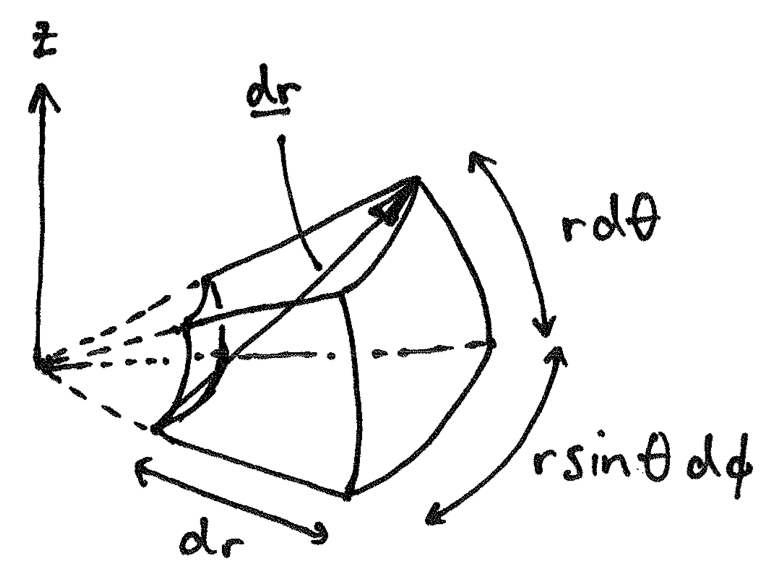 z
dr
rdθ
rsinθdϕ
dr